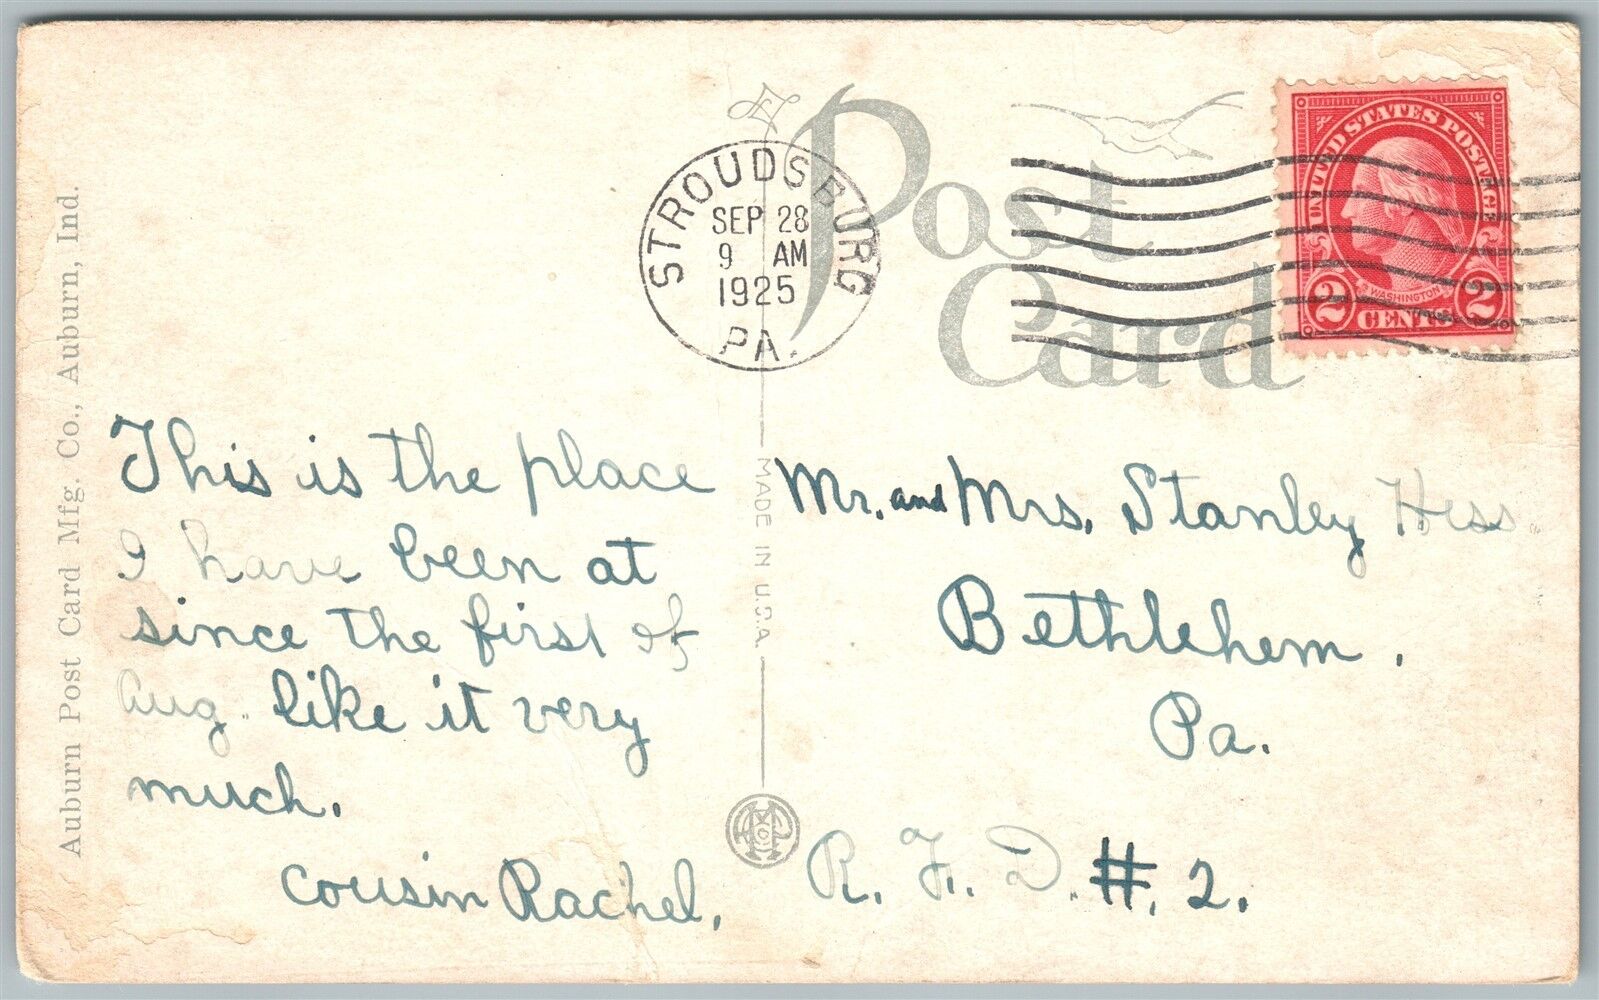 Auburn Post Card Mfg. Co., Auburn, Ind.
Post
Card
STROUDSBURG
SEP 28
9 AM
1925
PA.
UNITED STATES POSTAGE
WASHINGTON
2 CENTS 2
MADE IN U.S.A.
This is the place
I have been at
since the first of
Aug. like it very
much.
cousin Rachel.
Mr. and Mrs. Stanley Hess
Bethlehem.
Pa.
R. F. D. #. 2.